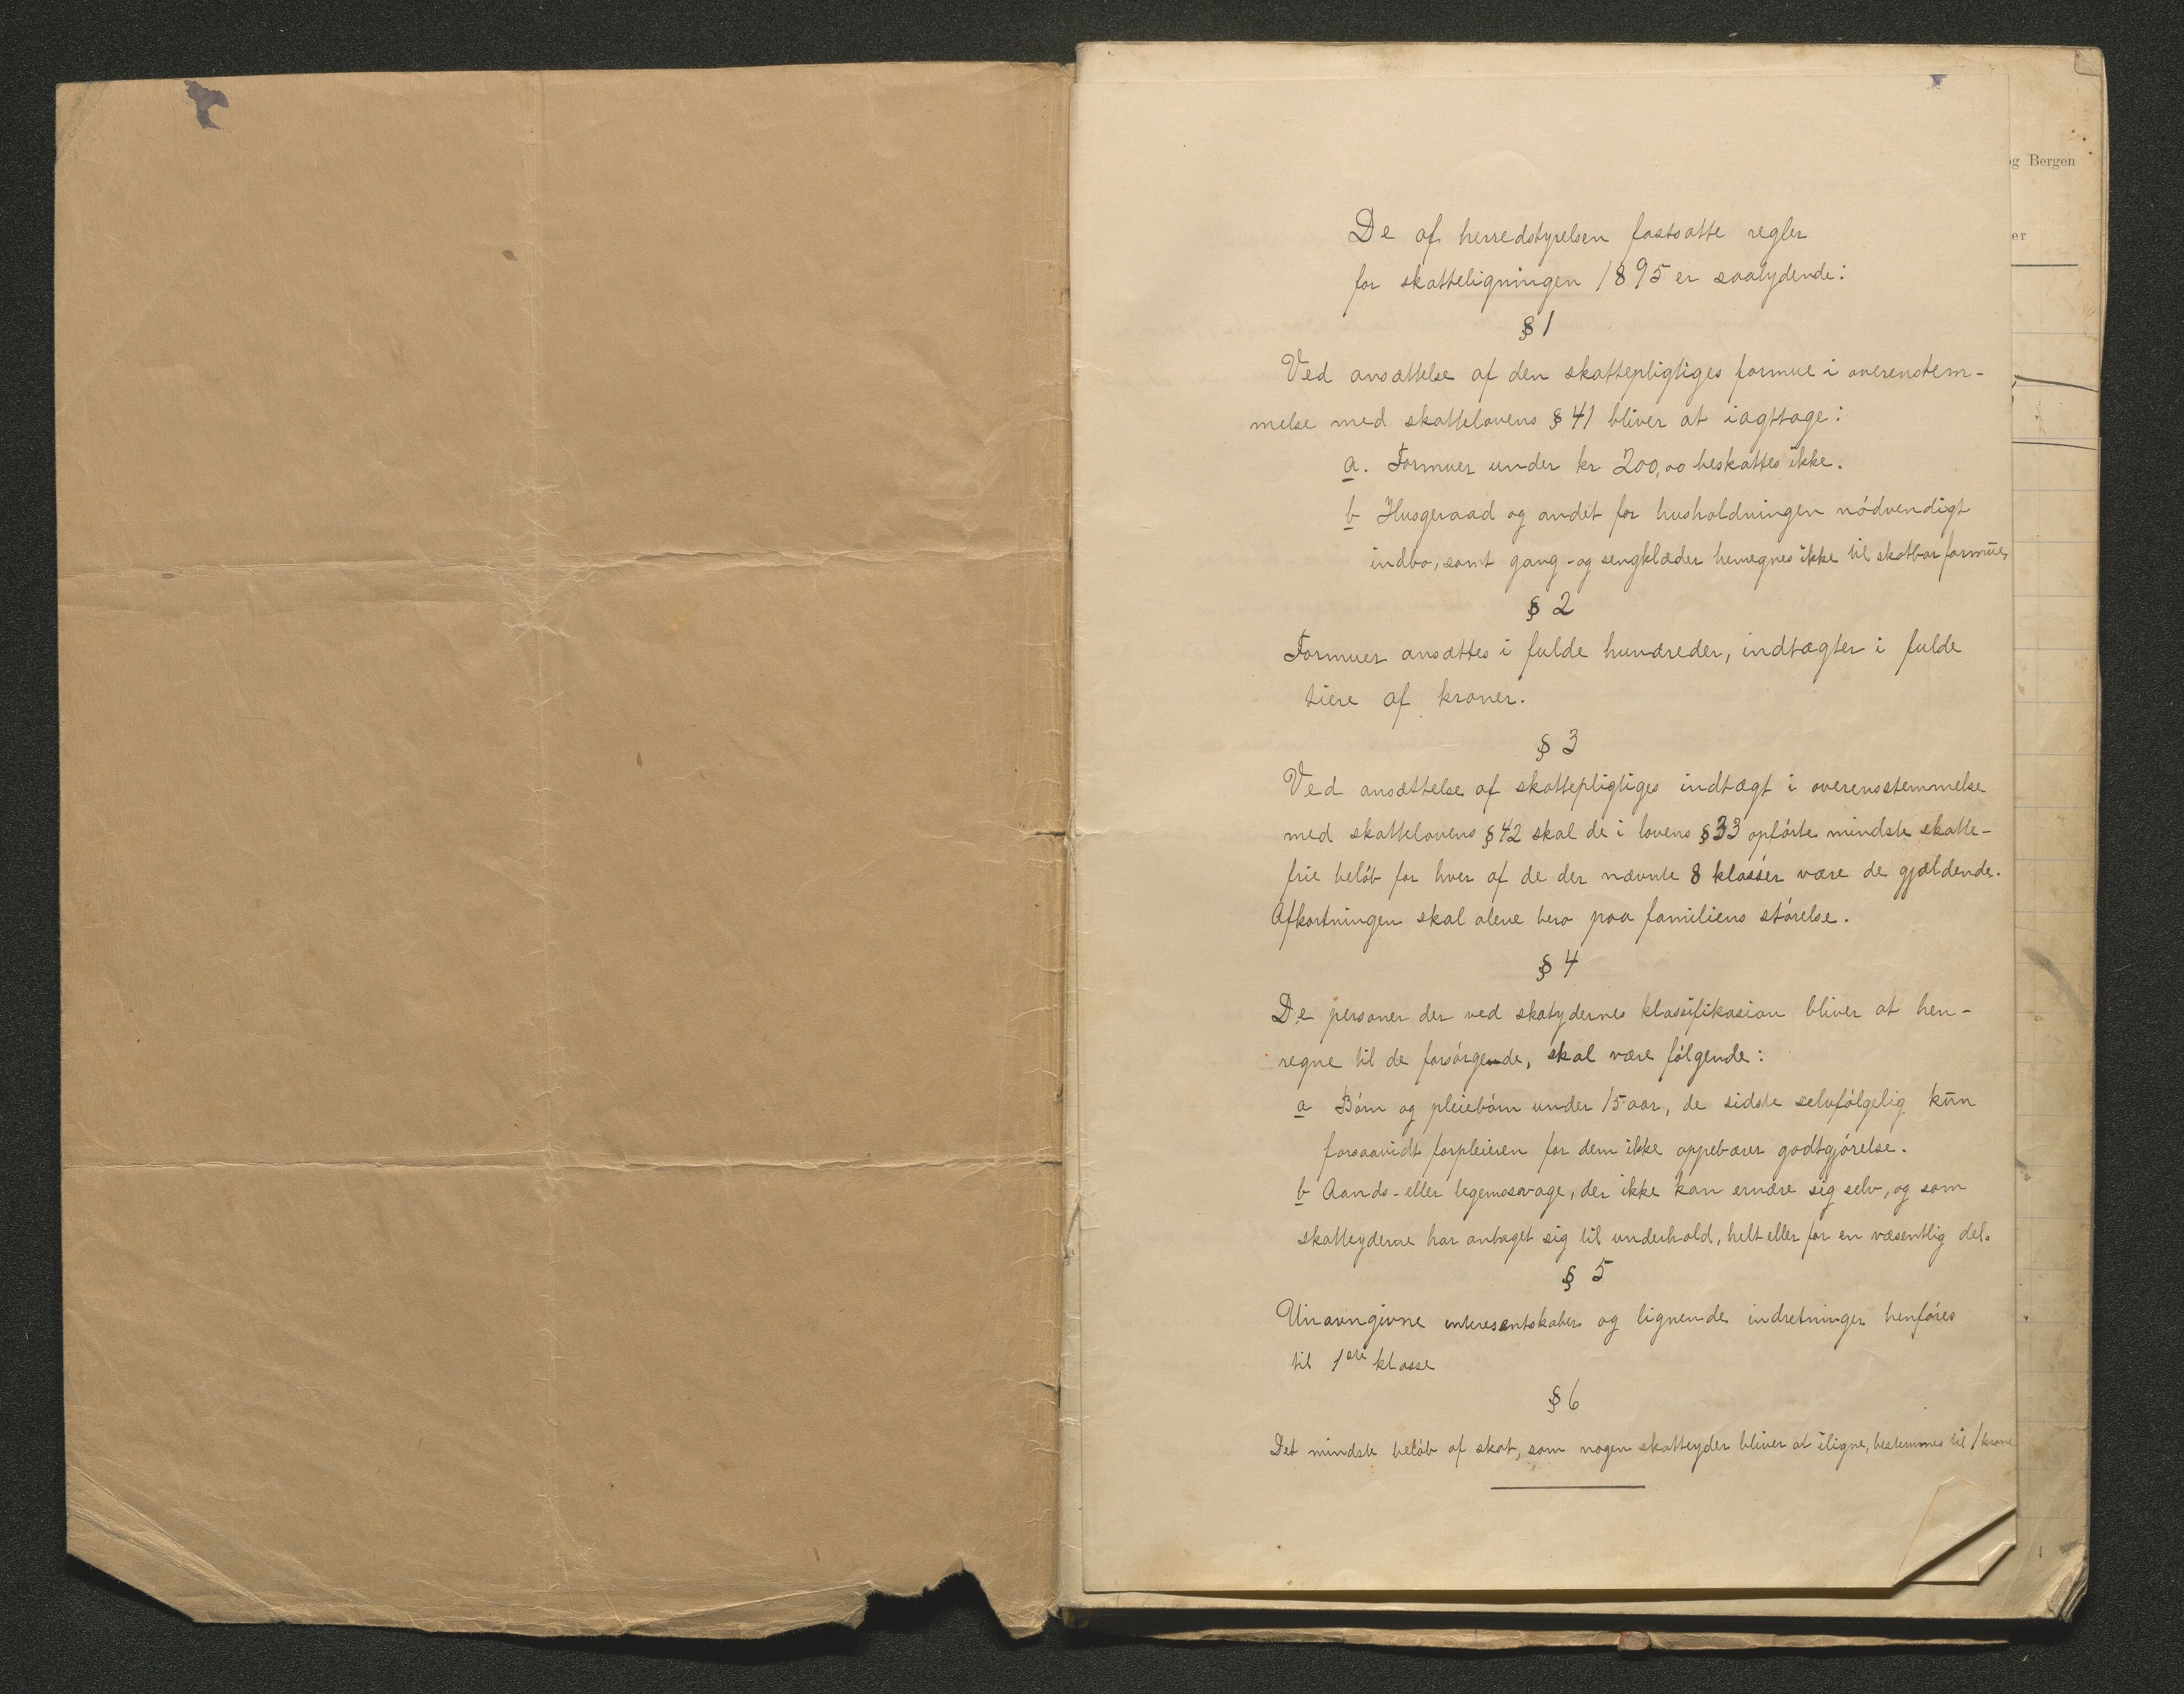 De af herredstyrelsen fastsatte regler
for skatteligningen 1895 er saalydende:
§ 1
Ved ansættelse af den skattepligtiges formue i overenstem-
melse med skattelovens § 41 bliver at iagttage:
a. Formuer under kr 200,00 beskattes ikke.
b Husgeraad og andet for husholdningen nódvendigt
indbo, samt gang- og sengklæder henregnes ikke til skatbar formūe,
§ 2
Formuer ansættes i fulde hundreder, indtægter i fulde
tiere af kroner.
§ 3
Ved ansættelse af skattepligtiges indtægt i overensstemmelse
med skattelovens § 42 skal de i lovens § 33 opfórte mindste skatte-
frie belób for hver af de der nævnte 8 klasser være de gjældende.
Afkortningen skal alene bero paa familiens stórelse.
§ 4
De personer der ved skatydernes klassifikasion bliver at hen-
regne til de forsórgende, skal være fólgende:
a Bórn og pleiebórn under 15 aar, de sidste selvfólgelig kūn
forsaavidt forpleieren for dem ikke oppebærer godtgjórelse.
b Aands- eller legemssvage, der ikke kan ernære sig selv, og som
skatteyderne har antaget sig til underhold, helt eller for en væsentlig del.
§ 5
Unavngivne interesentskaber og lignende indretninger henfóres
til 1ste klasse
§ 6
Det mindste belób af skat, som nogen skatteyder bliver at iligne, bestemmes til 1 krone
og Bergen
er